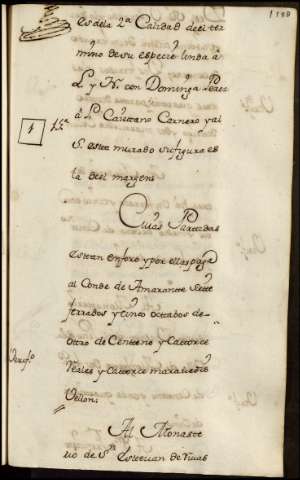 es dela 2ª Calidad de el ter
mino de su especie linda a
L y N. con Dominga Perez
a P. Caietano Carnero y al
S. esta murado su figura es
la del margen
Cuias Partidas
estan en foro y por ellas paga
al Conde de Amarante siete
ferrados y cinco octabos de
otro de Centeno y Catorce
reales y Catorce maravedis
Vellon:
Al Monaste
rio de Sn Esteuan de Riuas